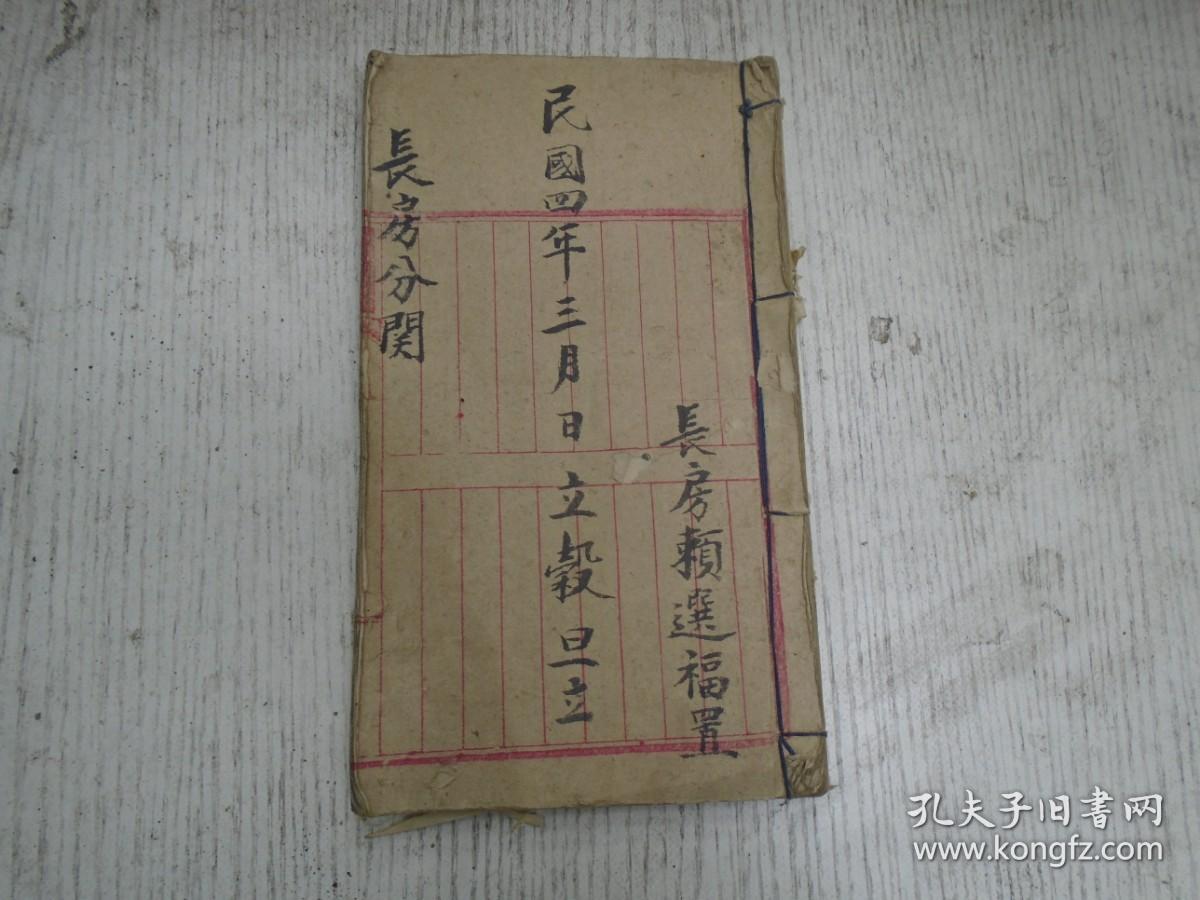 長房賴選福置
民國四年三月日立穀旦立
長房分関
孔夫子旧書网
www.kongfz.com